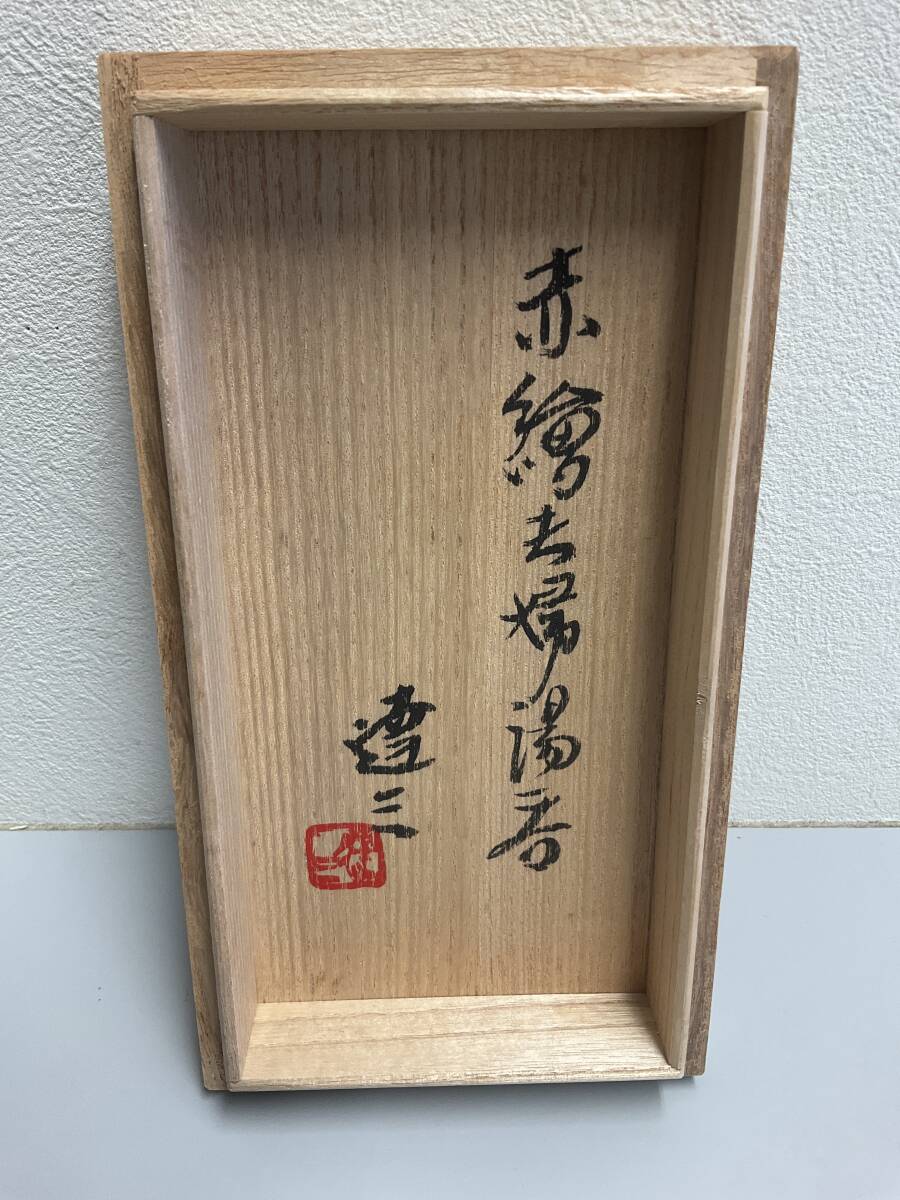 赤繪夫婦湯呑
達三